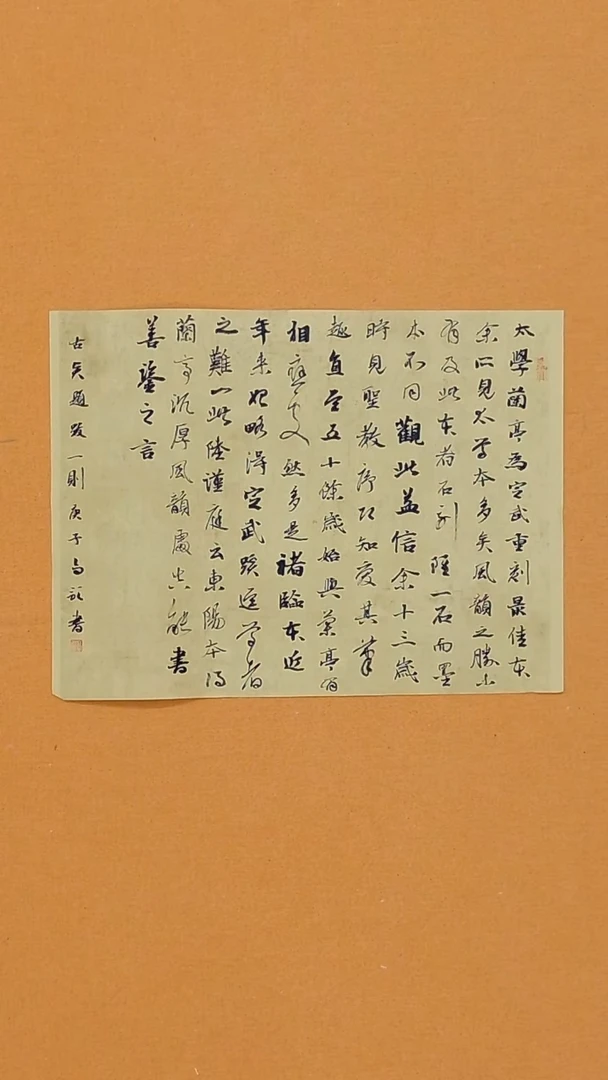 太學蘭亭為定武重刻最佳本
余所見太學本多矣風韻之勝少
有及此本者石刻雖一石而墨
本不同觀此益信余十三歲
時見聖教序即知愛其筆
趣直至五十餘歲始與蘭亭有
相應處然多是褚臨本近
年來始略得定武蹊逕
之難陸謹庭云東陽本得
蘭亭沉厚風韻處真能書
善鑒之言
古矣題跋一則庚子書